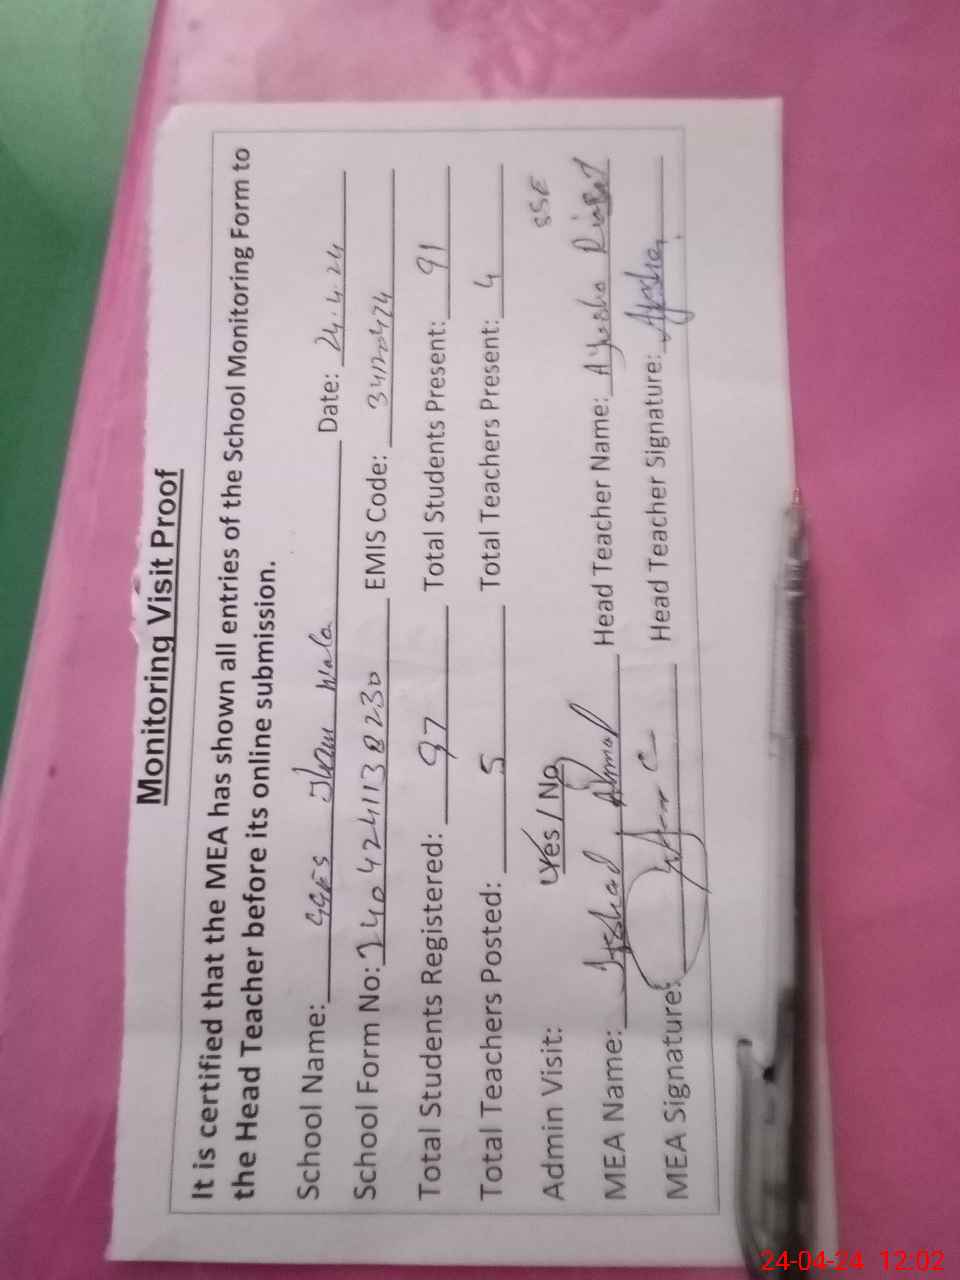 Monitoring Visit Proof
It is certified that the MEA has shown all entries of the School Monitoring Form to
the Head Teacher before its online submission.
School Name: GGES Wala Date: 24.4.24
School Form No: 2404241138230 EMIS Code:
Total Students Registered: 97 Total Students Present: 91
Total Teachers Posted: 5 Total Teachers Present: 4
Admin Visit: Yes / No SSE
MEA Name: Irshad Ahmad Head Teacher Name: Ayesha
MEA Signature: Head Teacher Signature: Ayesha
24-04-24 12:02